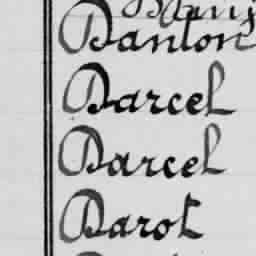 Danton
Darcel
Darcel
Darot